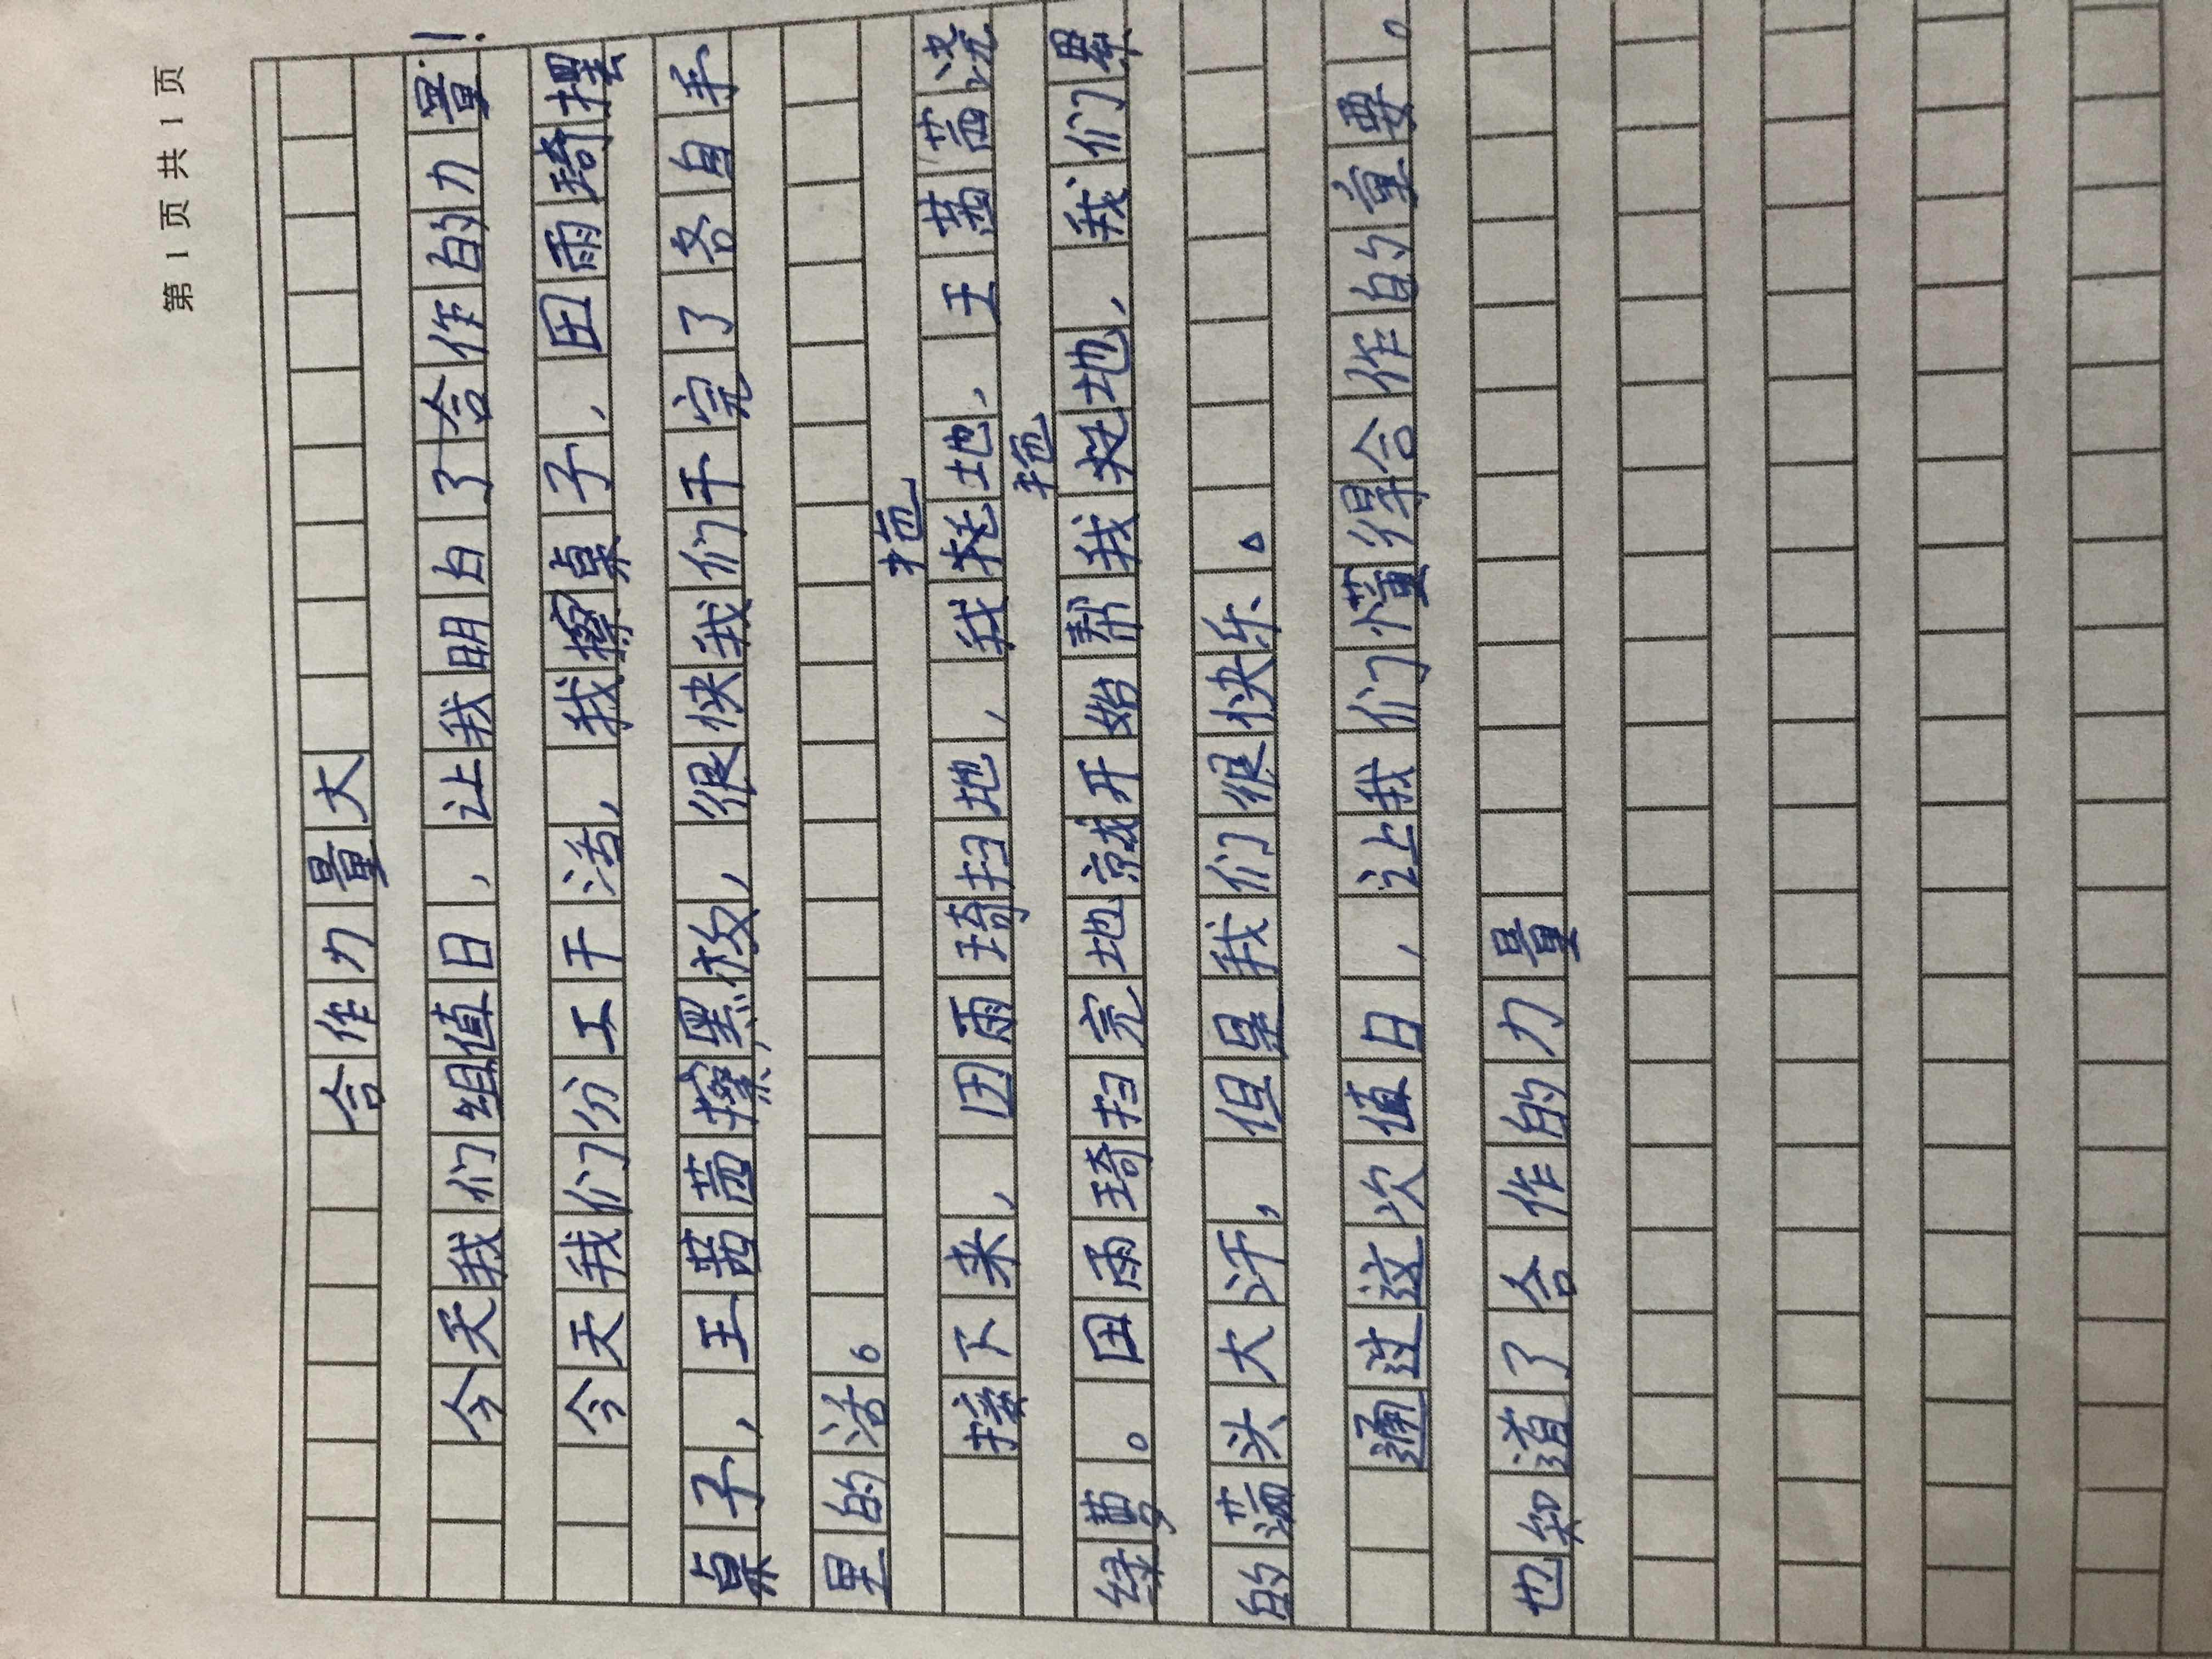 第 1 页 共 1 页
合作力量大
今天我们组值日，让我明白了合作的力量！
今天我们分工干活，我擦桌子，田雨琦摆
桌子，王茜茜擦黑板，很快我们干完了各自手
里的活。
拖
接下来，田雨琦扫地，我托地，王茜茜浇
拖
绿萝。田雨琦扫完地就开始帮我托地，我们累
的满头大汗，但是我们很快乐。
通过这次值日，让我们懂得合作的重要。
也知道了合作的力量